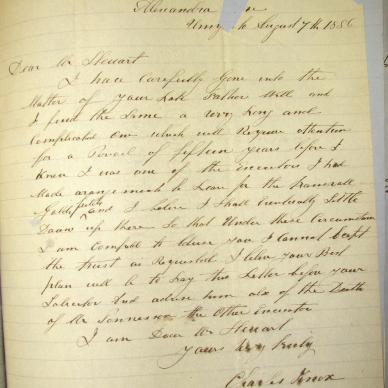 Alexandra
August 7th 1886
Dear Mr Steuart
I have Carefully Gone into the
Matter of Your Late Father Will and
I find the Same a very Long and
Complicated One which will Require attention
for a Peroid of fifteen years before I
Knew I was one of the incutors I had
Made arangements to Leave for the
Gold fields and I beleve I Shall Eventually Settle
Down up there So that Under these Circumstances
I am Compell to advise you I Cannot Exept
the trust as Requested I beleve your Best
plan will be to Lay this Letter before your
Solicitor And advise him also of the Death
of Mr the Other incutor
I am Dear Mr Steuart
Yours Very truly
Charles Knox